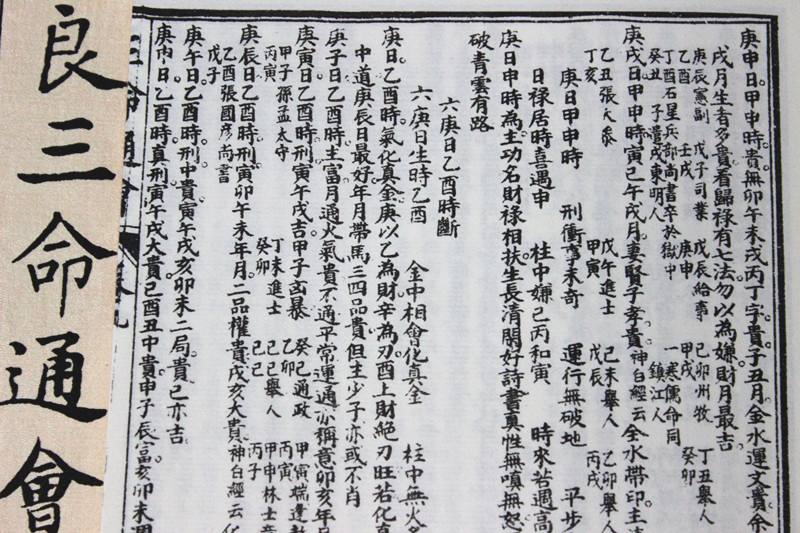 庚申日甲申時。貴無卯午未戌丙丁字。貴子丑月。金水運文貴。余
戌月生者多貴看歸祿有七法勿以為嫌財月最吉。
庚辰憲副 戊子司業 戊辰給事 己卯州牧 丁丑舉人
乙酉 壬戌 庚申 甲戌 癸卯
丁酉石星兵部尚書卒於獄中 一寒儒命同
癸丑 子遣戍東明人 鎮江人
庚戌日甲申時寅己午戌月。妻賢子孝貴。神白經云全水帶印主
乙丑張大參 戊午進士 己未舉人 乙卯舉人
丁亥 甲寅 戊辰 丙戌
庚日甲申時 刑衝喜未奇 運行無破地 平步
日祿居時喜遇申 柱中嫌己丙和寅 時來若遇高
庚日申時為主功名財祿相扶生長清閑好詩書真性無嗔無恕
破青雲有路
六庚日乙酉時斷
六庚日生時乙酉 金中相會化真金 柱中無火
庚日。乙酉時。氣化真金。庚以乙為財。辛為刃。酉上財絕刃旺若化真
中道庚辰日最好年月帶馬三四品貴。但主少子亦或不肖
庚子日乙酉時。主富月通火氣貴不通平常運通亦稱意卯亥年
庚寅日乙酉時刑。寅午戌吉甲子凶暴 癸己通政 甲寅端達
甲子孫孟太守 乙卯 丙寅
丙寅 丁未進士 己巳舉人 甲申林士
癸卯 己巳 丙子
庚辰日乙酉時刑。寅卯午未年月。二品權貴戌亥大貴。神白經云化
乙酉張國彥尚書
戊子
庚午日乙酉時。刑中貴。寅午戌亥卯未二局貴。己亦吉
庚申日乙酉時。真刑寅午戌大貴。己酉丑中貴。申子辰富。亥卯未
三命通會 卷九
良三命通會